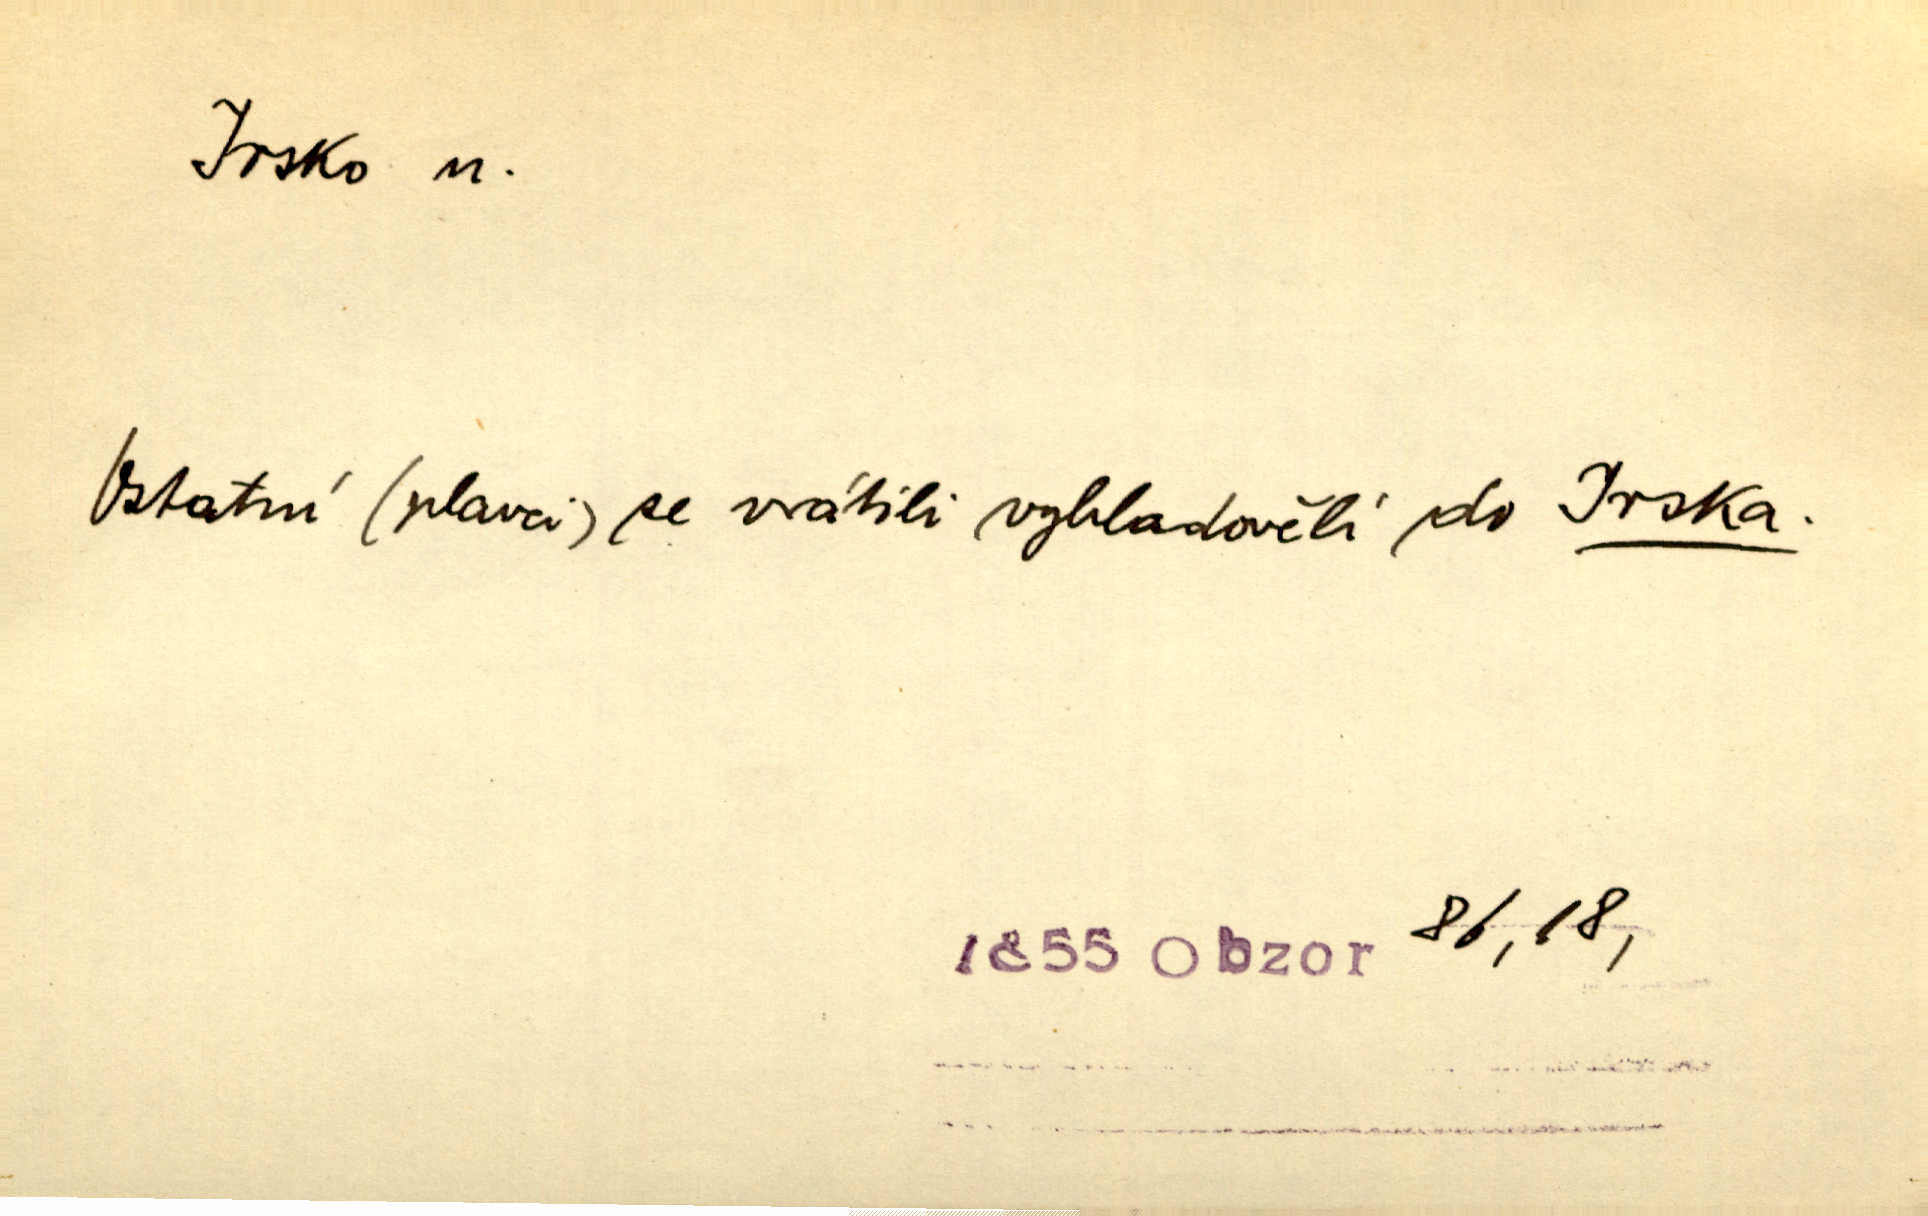 Irsko n.
Ostatní (plavci) se vrátili vyhladovělí do Irska.
1855 Obzor 86, 18,